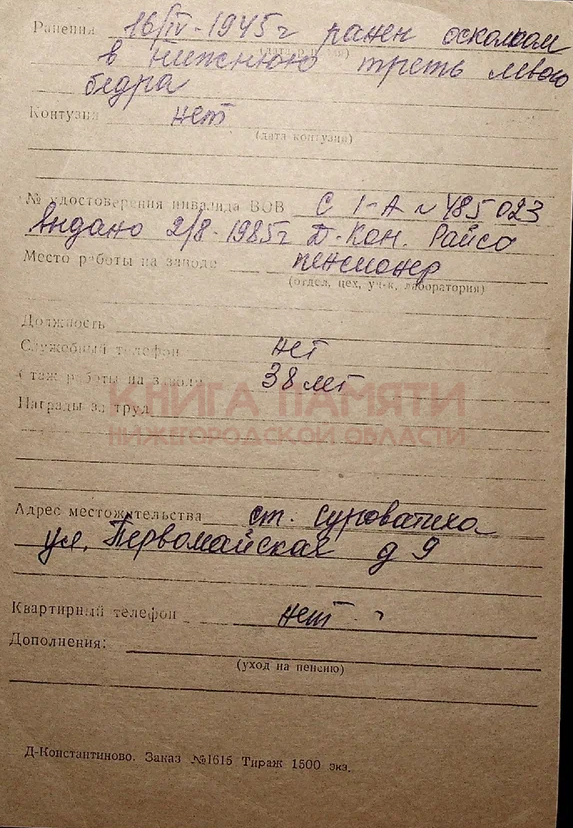 Ранения 16/IV-1945г ранен осколком
(дата ранения)
в нижнюю треть левого
бедра
Контузия нет
(дата контузии)
№ удостоверения инвалида ВОВ С 1-А № 485023
Выдано 2/8-1985г Д-Кон. Райсо
Место работы на заводе пенсионер
(отдел, цех, уч-к, лаборатория)
Должность
Служебный телефон нет
Стаж работы на заводе 38 лет
КНИГА ПАМЯТИ
Награды за труд
НИЖЕГОРОДСКОЙ ОБЛАСТИ
Адрес местожительства ст. Суроватиха
ул. Первомайская д 9
Квартирный телефон нет
Дополнения:
(уход на пенсию)
Д-Константиново. Заказ №1615 Тираж 1500 экз.